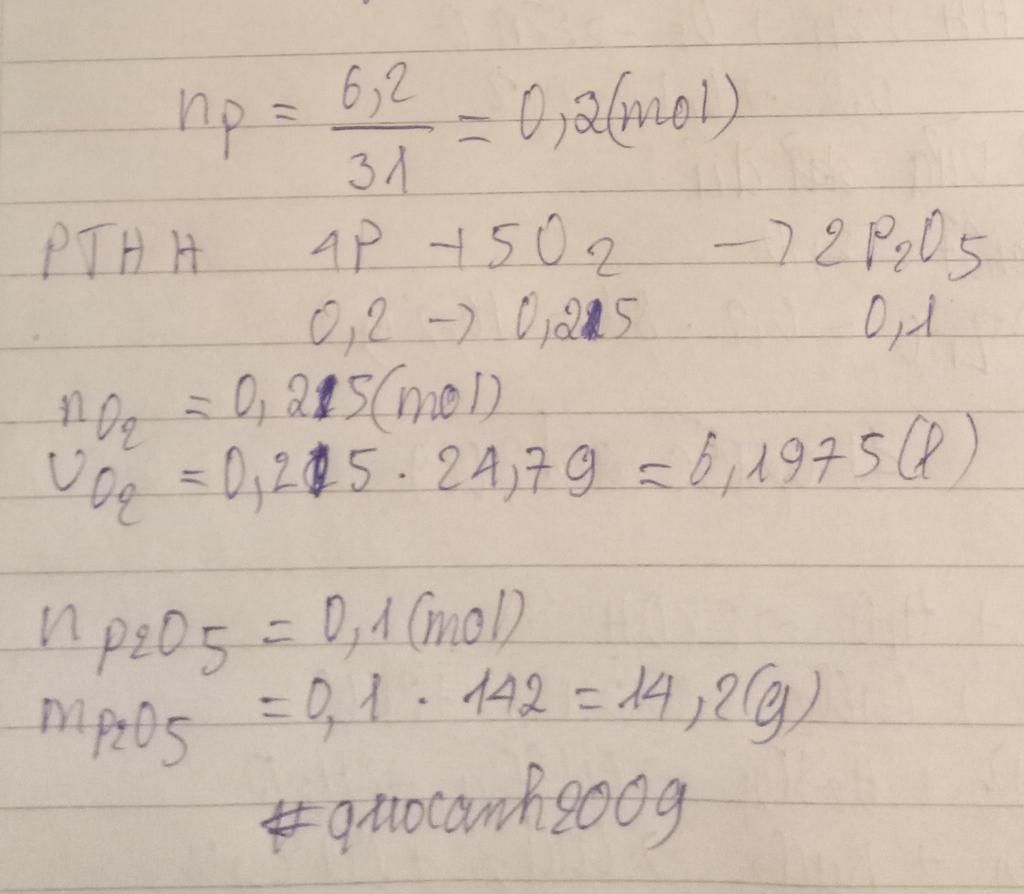 nP = 6,2/31 = 0,2(mol)
PTHH 4P + 5O2 -> 2P2O5
0,2 -> 0,25 0,1
nO2 = 0,25(mol)
VO2 = 0,25 . 24,79 = 6,1975(l)
nP2O5 = 0,1(mol)
mP2O5 = 0,1 . 142 = 14,2(g)
#quocanh2009